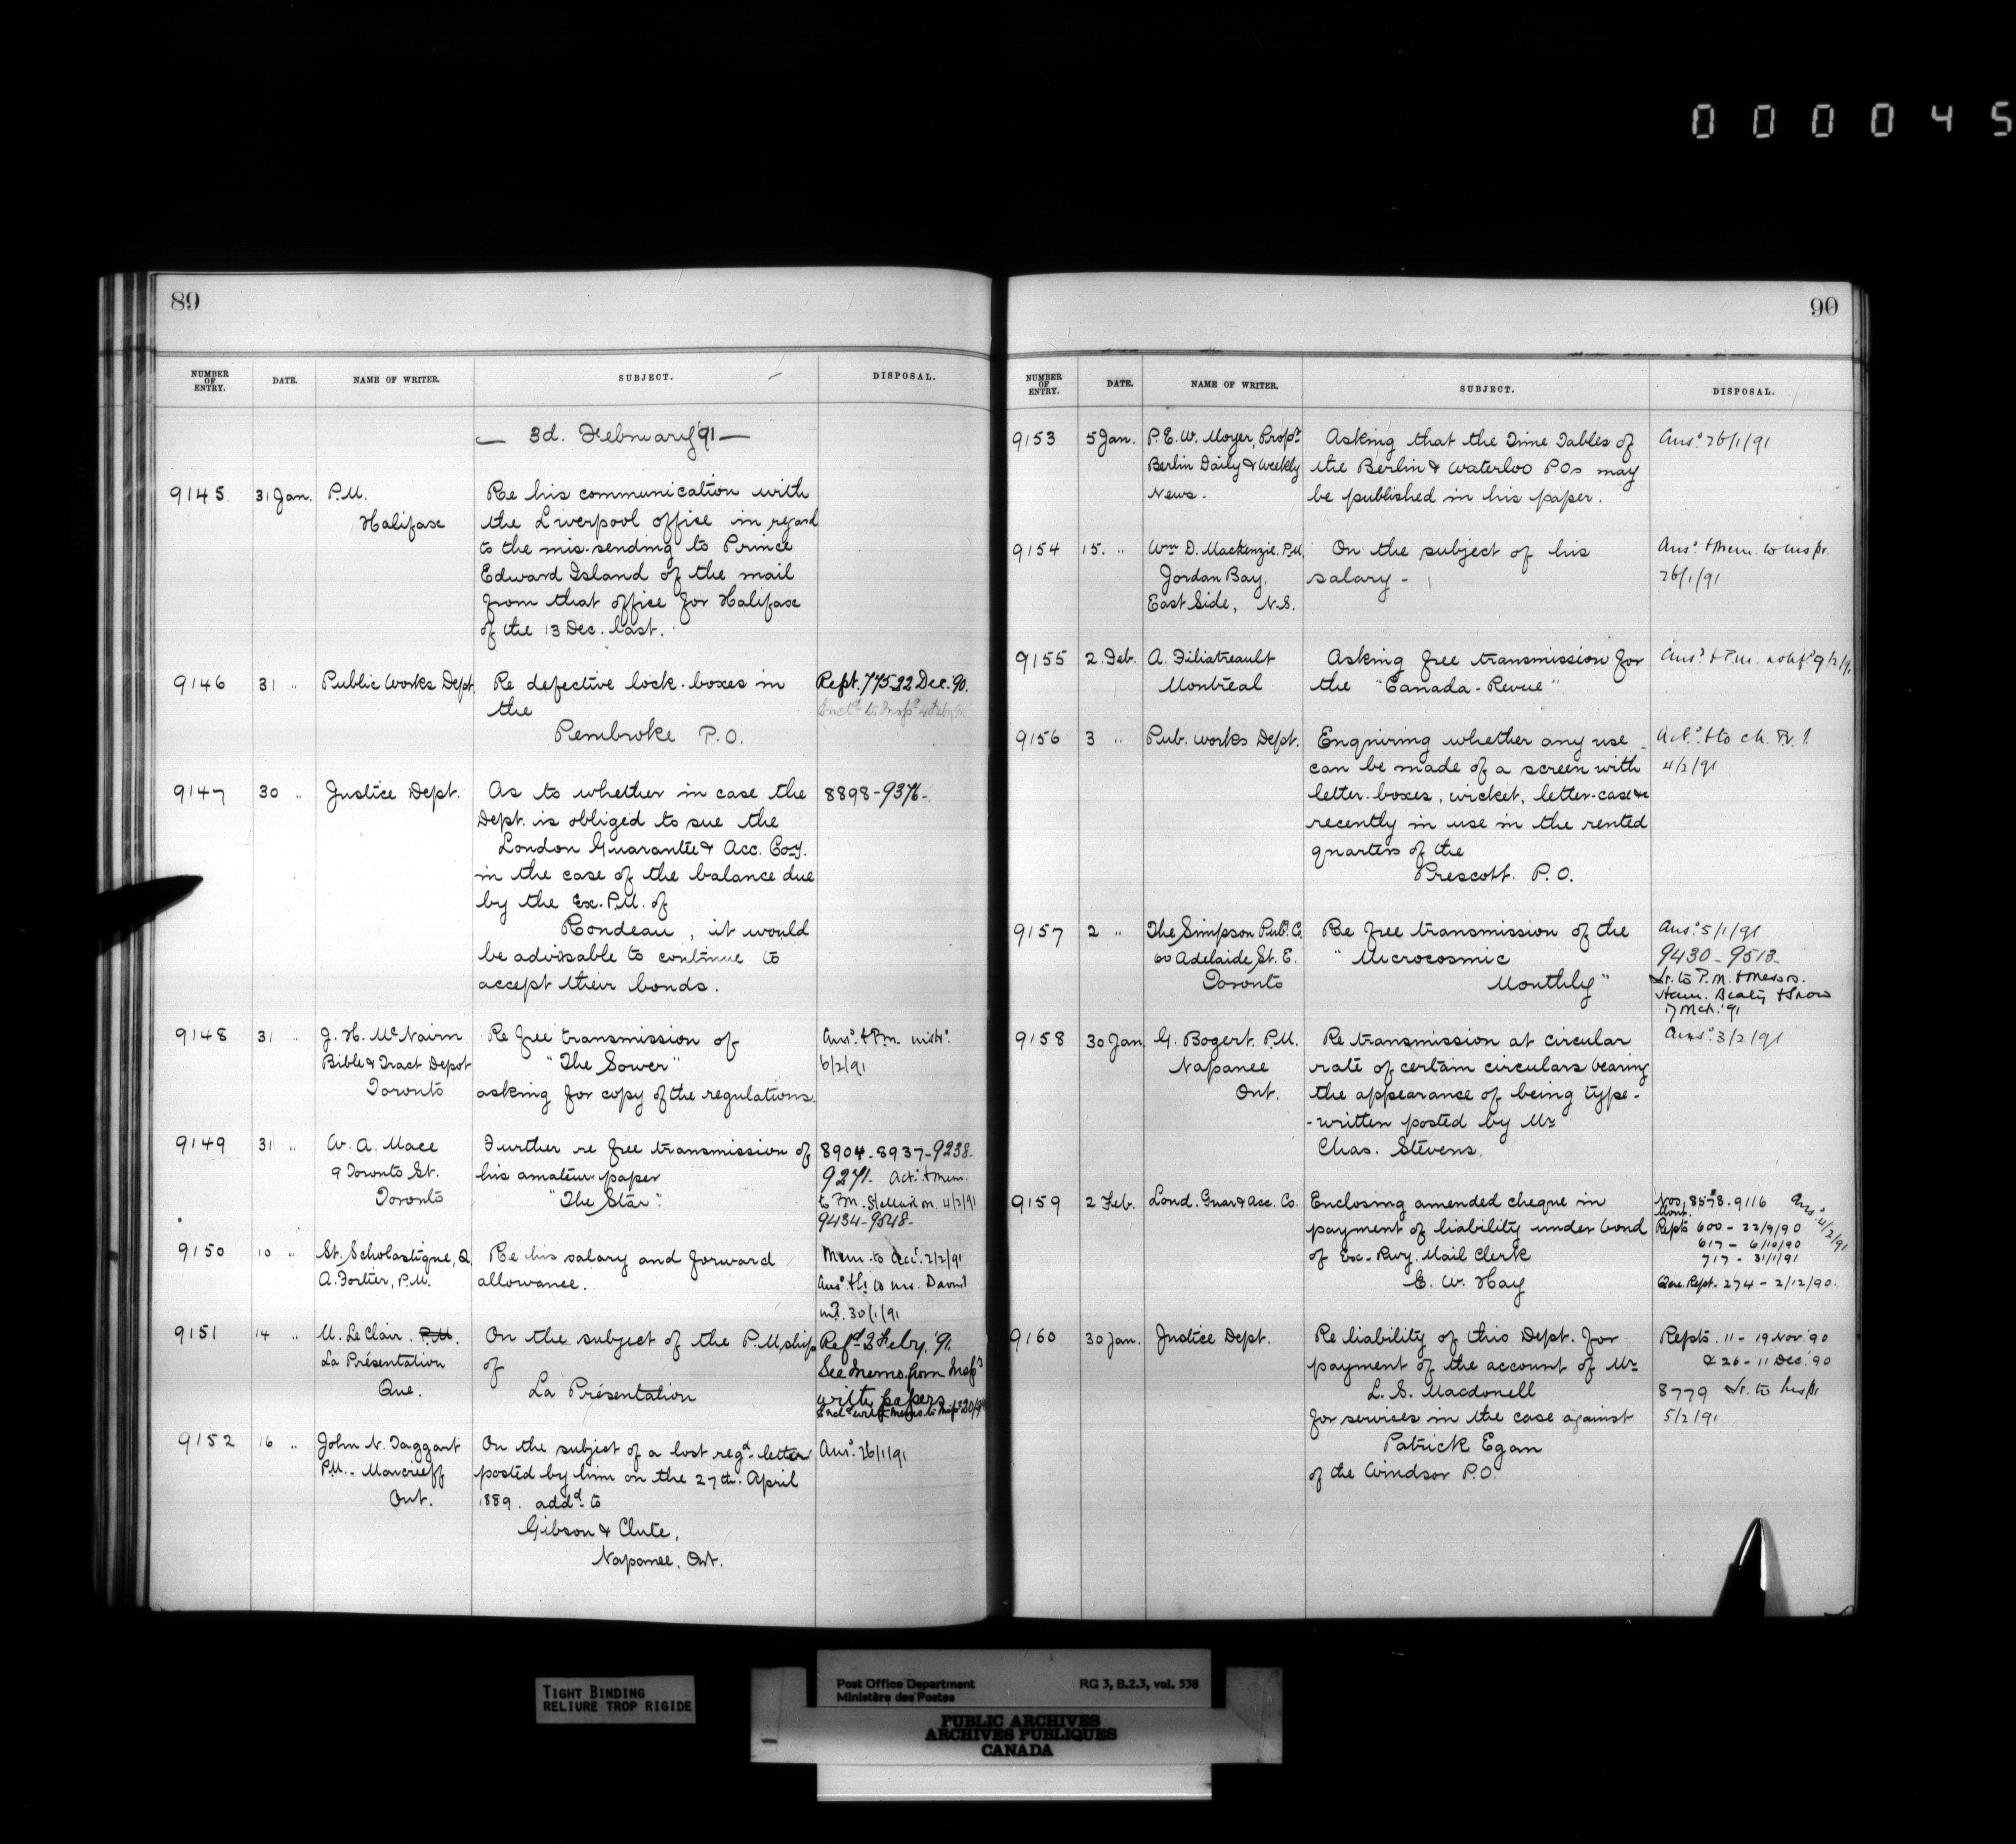 000045
89
NUMBER OF ENTRY. DATE. NAME OF WRITER. SUBJECT. DISPOSAL.
— 3d. February '91 —
9145. 31 Jan. P.M. Re his communication with
Halifax the Liverpool office in regard
to the mis-sending to Prince
Edward Island of the mail
from that office for Halifax
of the 13 Dec. last.
9146 31 " Public Works Dept. Re defective lock-boxes in Rept. 775 22 Dec. '90.
the
Pembroke P.O.
9147 30 " Justice Dept. As to whether in case the 8898-9376-
Dept. is obliged to sue the
London Guarantee & Acc. Co-y.
in the case of the balance due
by the Ex-P.M. of
Rondeau, it would
be advisable to continue to
accept their bonds.
9148 31 " J. H. McNairn Re free transmission of Ansd. & P.M.
Bible & Tract Depot "The Sower" 6/2/91
Toronto asking for copy of the regulations.
9149 31 " W. A. Mace Further re free transmission of 8904-8937-9238-
9 Toronto St. his amateur paper 9271. & Mem.
Toronto "The Star". to P.M. 4/2/91
9434-9548-
9150 10 " St. Scholastique, Q. Re his salary and forward Mem. to Acct. 2/2/91
A. Fortier, P.M. allowance. Ansd.
30/1/91
9151 14 " M. Le Clair. P.M. On the subject of the P.M.ship Refd 3 Febry. '91.
La Présentation of See Memo. from Inspr
Que. La Présentation with papers
9152 16 " John N. Taggart On the subject of a lost regd. letter Ansd. 26/1/91
P.M. - Moncrieff posted by him on the 27th. April
Ont. 1889. addd. to
Gibson & Clute,
Napanee, Ont.
90
NUMBER OF ENTRY. DATE. NAME OF WRITER. SUBJECT. DISPOSAL.
9153 5 Jan. P.E.W. Moyer, Propr. Asking that the Time Tables of Ansd. 26/1/91
Berlin Daily & Weekly the Berlin & Waterloo P.Os may
News. be published in his paper.
9154 15. " Wm D. Mackenzie. P.M. On the subject of his Ansd. & Mem. to Inspr.
Jordan Bay, salary - 26/1/91
East Side, N.S.
9155 2. Feb. A. Filiatreault Asking free transmission for Ansd. & P.M. notifd 9/2/91
Montreal the "Canada-Revue"
9156 3 " Pub. Works Dept. Enquiring whether any use
can be made of a screen with 4/2/91
letter-boxes, wicket, letter-case &c
recently in use in the rented
quarters of the
Prescott. P.O.
9157 2 " The Simpson Publ. Co. Re free transmission of the Ansd. 5/1/91
60 Adelaide St. E. "Microcosmic 9430-9513-
Toronto Monthly" Lr. to P.M. & Messrs.
Ham. Beaty & Snow
7 Mch. '91
9158 30 Jan. G. Bogert. P.M. Re transmission at circular Ansd. 3/2/91
Napanee rate of certain circulars bearing
Ont. the appearance of being type-
-written posted by Mr
Chas. Stevens.
9159 2 Feb. Lond. Guar & Acc. Co. Enclosing amended cheque in Nos. 8578-9116 Ansd. 4/2/91
payment of liability under bond Mont. Repts 600 - 22/9/90
of Ex-Rwy. Mail Clerk 617 - 6/10/90
717 - 31/1/91
E. W. Hay Que. Rept. 274 - 2/12/90.
9160 30 Jan. Justice Dept. Re liability of this Dept. for Repts. 11 - 19 Nov. '90
payment of the account of Mr & 26 - 11 Dec. '90
L. S. Macdonell 8779 Lr. to Inspr
for services in the case against 5/2/91
Patrick Egan
of the Windsor P.O.
TIGHT BINDING
RELIURE TROP RIGIDE
Post Office Department RG 3, B.2.3, vol. 538
Ministère des Postes
PUBLIC ARCHIVES
ARCHIVES PUBLIQUES
CANADA